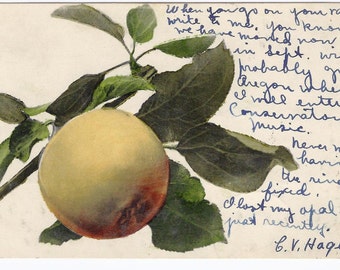 When you go on your va
write to me, you know
we have moved now
in sept. wi
probably go
Oregon whe
I will ent
Conservato
Music.
Never m
havin
the ring
fixed.
I lost my opal
just recently.
C. V. Hage